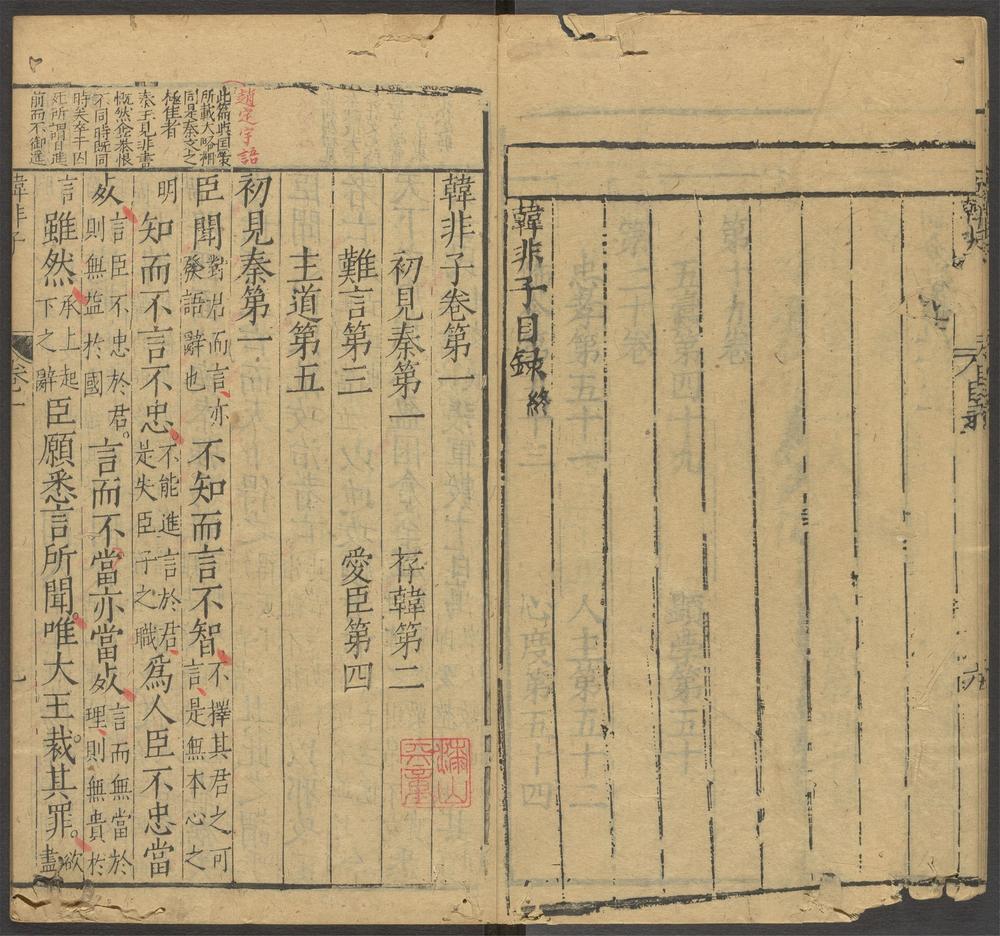 韓非子目録終
趙定宇語
此篇與国策
所載大略相
同是秦文之
極佳者
秦王見非書
慨然念慕恨
不同時既同
時矣卒于囚
死所謂日進
前而不御遙
韓非子卷第一
初見秦第一 存韓第二
難言第三 愛臣第四
主道第五
初見秦第一
臣聞對君而言亦發語辭也不知而言不智不擇其君之可言是無本心之
明知而不言不忠不能進言於君是失臣子之職爲人臣不忠當
死言臣不忠於君。則無益於國言而不當亦當死言而無當於理則無貴於
言雖然承上起下之辭臣願悉言所聞。唯大王裁其罪。欲盡
韓非子
卷一